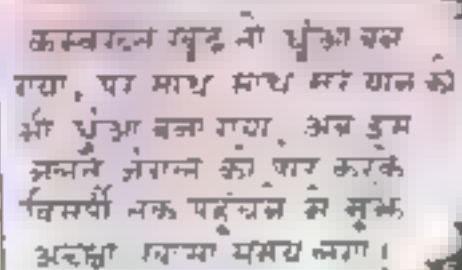 कमबख्त खुद तो धुंआ बन
गया, पर साथ साथ मेरे यान को
भी धुंआ बना गया, अब इस
जलते जंगल को पार करके
बस्ती तक पहुंचने में मुझे
अच्छा खासा समय लगा।